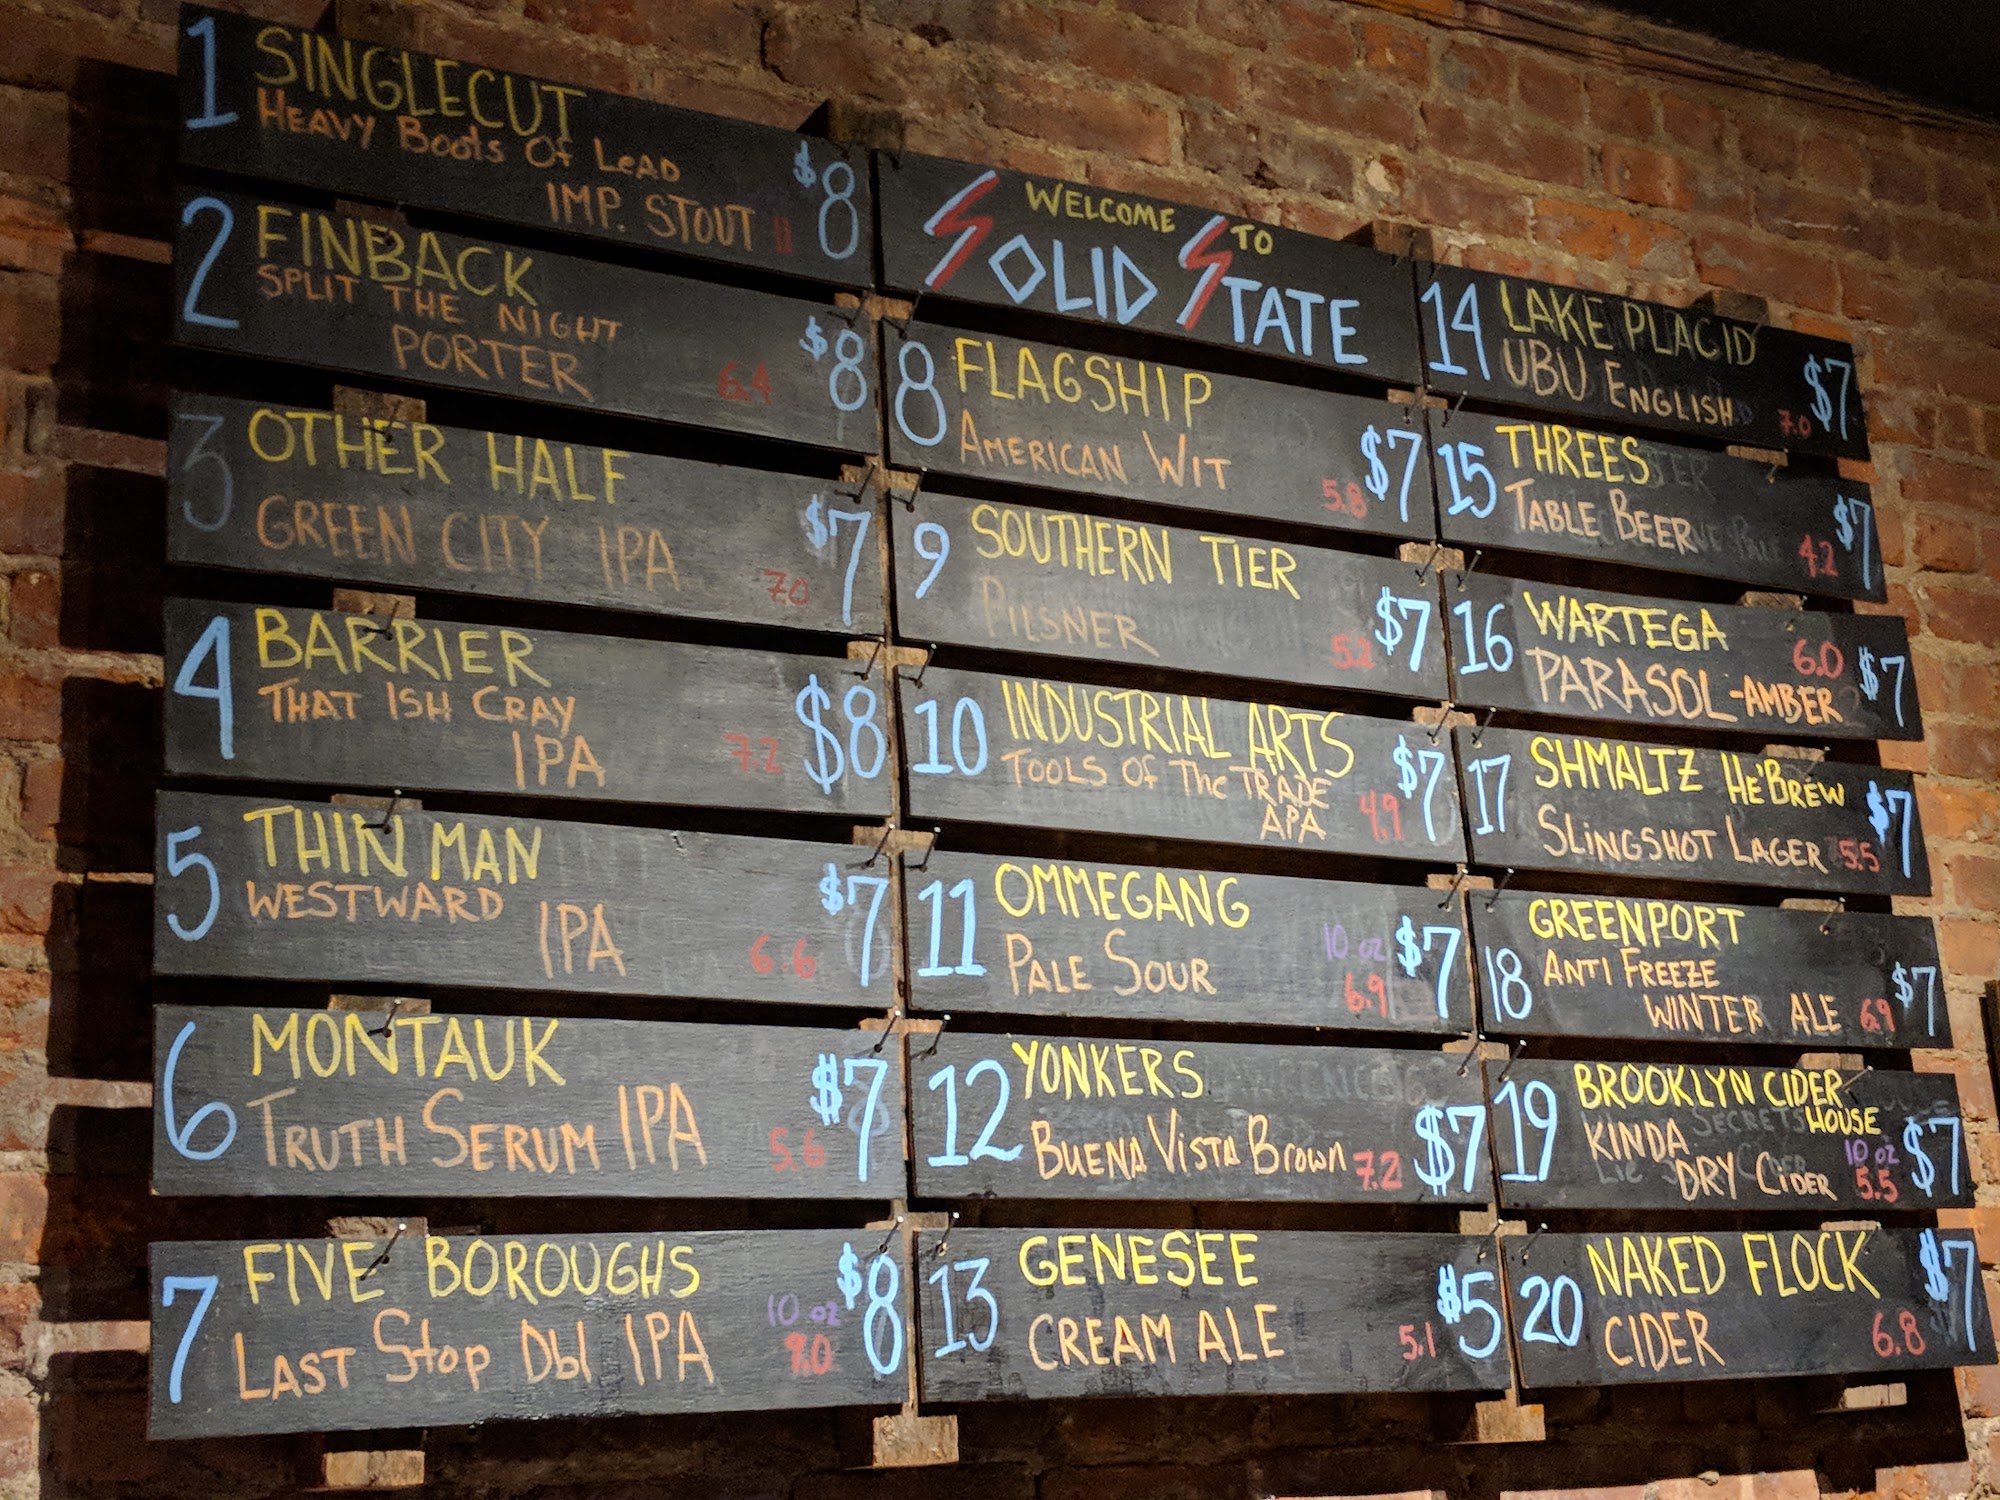 1 SINGLECUT
HEAVY Boots Of LeAD
IMP. STOUT 11 $8
2 FINBACK
SPLIT THE NIGHT
PORTER 6.4 $8
3 OTHER HALF
GREEN CITY IPA 7.0 $7
4 BARRIER
THAT ISH CRAY
IPA 7.2 $8
5 THIN MAN
WESTWARD IPA 6.6 $7
6 MONTAUK
TRUTH SERUM IPA 5.6 $7
7 FIVE BOROUGHS
LAST Stop Dbl IPA 10 oz 9.0 $8
WELCOME TO
SOLID STATE
8 FLAGSHIP
AMERICAN WIT 5.8 $7
9 SOUTHERN TIER
PILSNER 5.2 $7
10 INDUSTRIAL ARTS
TOOLS Of The TRADE
APA 4.9 $7
11 OMMEGANG
PALE SOUR 10 oz 6.9 $7
12 YONKERS
BUENA VISTA Brown 7.2 $7
13 GENESEE
CREAM ALE 5.1 $5
14 LAKE PLACID
UBU ENGLISH 7.0 $7
15 THREES
TABLE BEER 4.2 $7
16 WARTEGA
PARASOL -AMBER 6.0 $7
17 SHMALTZ HE'BREW
SLINGSHOT LAGER 5.5 $7
18 GREENPORT
ANTI FREEZE
WINTER ALE 6.9 $7
19 BROOKLYN CIDER
HOUSE
KINDA
DRY CIDER 10 oz 5.5 $7
20 NAKED FLOCK
CIDER 6.8 $7